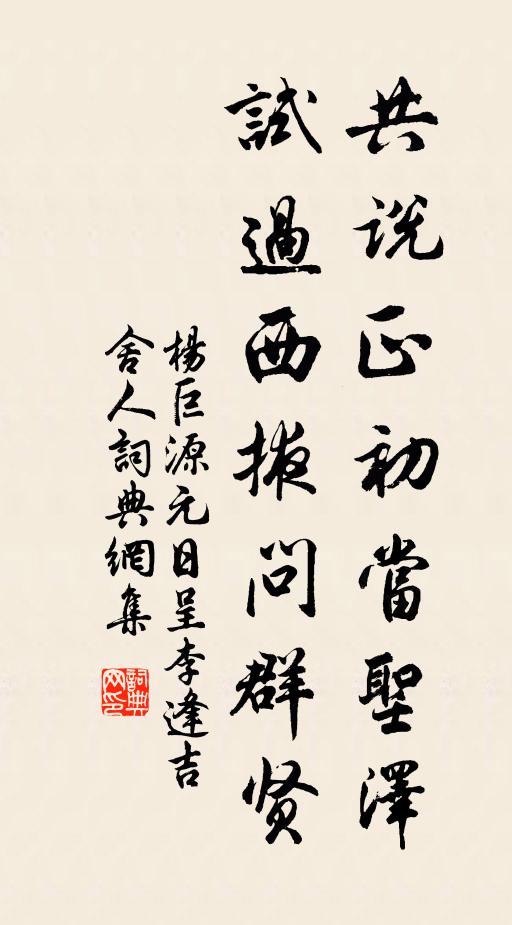 共説正初當聖澤
試過西掖問群贤
楊巨源元日呈李逢吉
舍人詞典網集
詞典网印